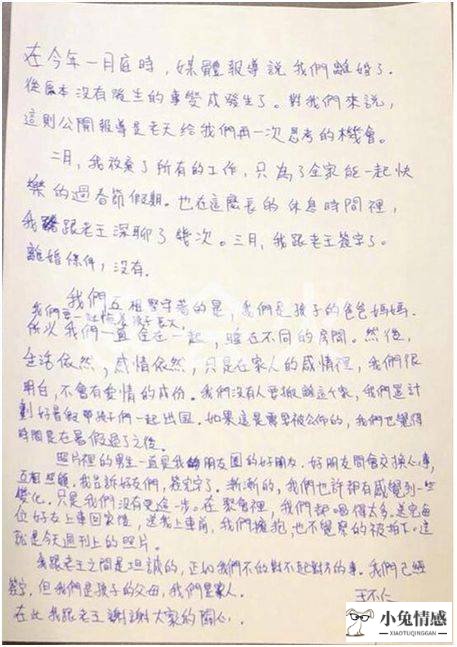 在今年一月底時，媒體報導說我們離婚了．
從原本沒有發生的事變成發生了。對我們來說，
這則公開報導是老天給我們再一次思考的機會。
二月，我放棄了所有的工作，只為了全家能一起快
樂的過春節假期．也在這麼長的休息時間裡，
我跟老王深聊了幾次。三月，我跟老王簽字了。
離婚條件，沒有．
我們互相堅守著的是，我們是孩子的爸爸媽媽．
我們要一起陪著孩子長大，
所以我們一直住在一起，睡在不同的房間。然後，
生活依然，感情依然，只是在家人的感情裡，我們很
明白，不會有愛情的成份。我們沒有人要搬離這個家，我們還計
劃好暑假帶孩子們一起出國．如果這是需要被公佈的，我們也覺得
時間是在暑假過了之後．
照片裡的男生一直是我朋友圈的好朋友．好朋友間會交換心事，
互相照顧，我告訴好友們，簽字了．漸漸的，我們也許都有感覺到一些
變化。只是我們沒有更進一步。在聚會裡，我們都喝得太多，送完每
位好友上車回家後，送我上車前，我們擁抱，也不覺察的被拍下。這
就是今天週刊上的照片．
我跟老王之間是坦誠的，正如我們不的對不起對方的事．我們已經
簽字，但我們是孩子的父母，我們是家人．
王不仁
在此我跟老王謝謝大家的關心．
小兔情感
XIAOTUQINGGAN